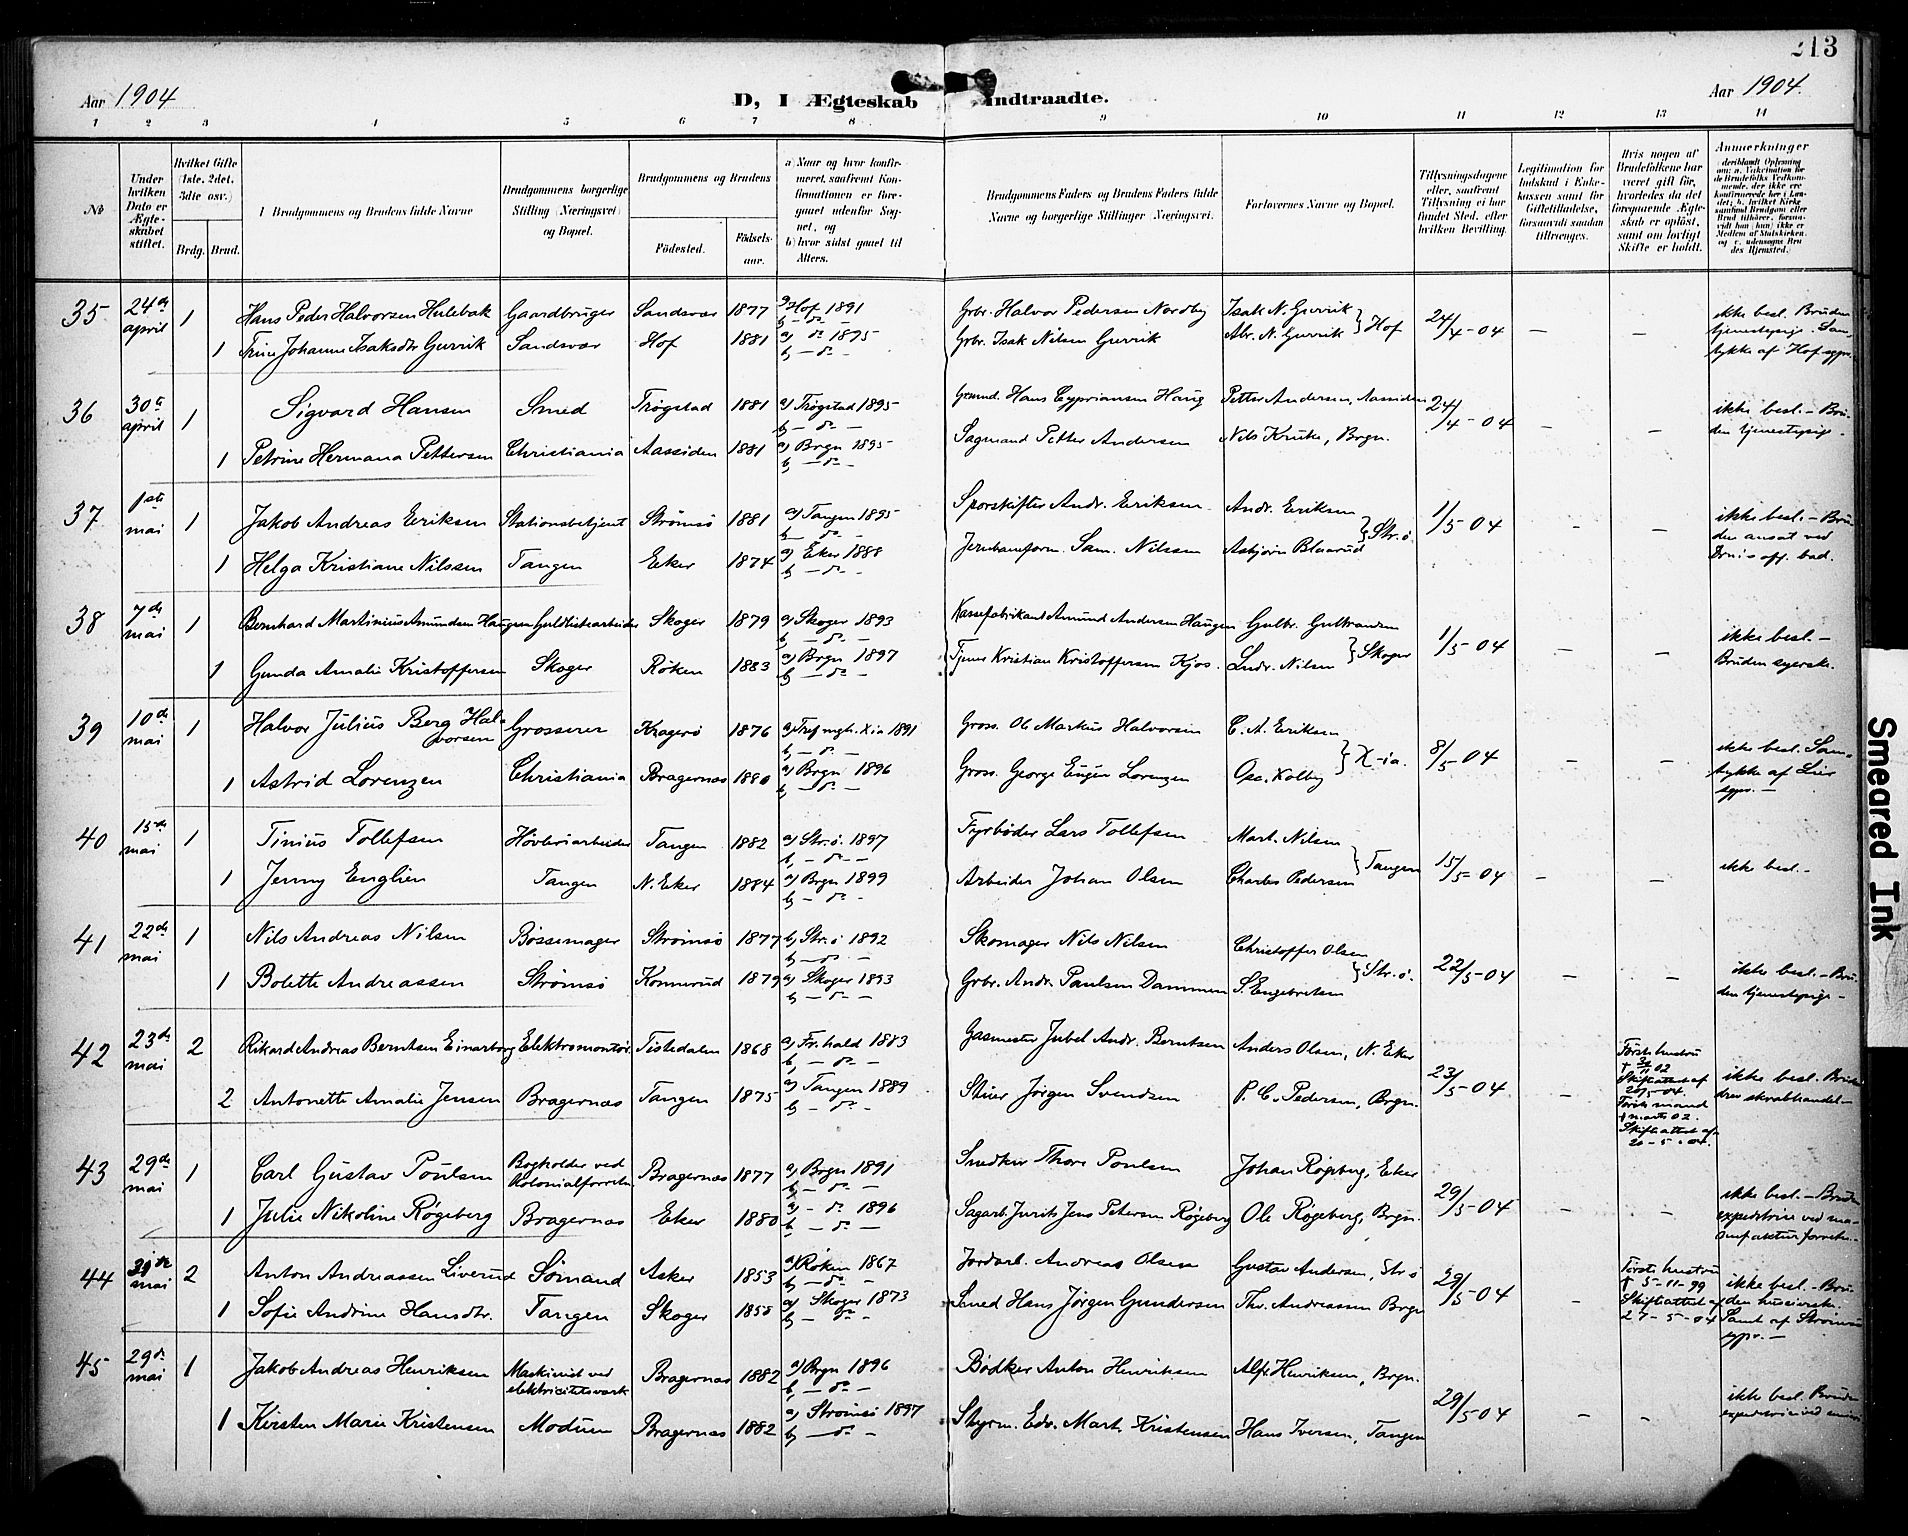 213
Aar 1904
D, I Ægteskab Indtraadte.
Aar 1904.
1 2 3 4 5 6 7 8 9 10 11 12 13 14
No
Under hvilken Dato er Ægteskabet stiftet.
Hvilket Gifte (1ste, 2det, 3die osv.)
Brdg. Brud.
Brudgommens og Brudens fulde Navne
Brudgommens borgerlige Stilling (Næringsvei) og Bopæl.
Brudgommens og Brudens
Fødested. Fødselsaar.
a) Naar og hvor konfirmeret, saafremt Konfirmationen er foregaaet udenfor Sognet, og
b) hvor sidst gaaet til Alters.
Brudgommens Faders og Brudens Faders fulde Navne og borgerlige Stillinger (Næringsvei).
Forlovernes Navne og Bopæl.
Tillysningsdagene eller, saafremt Tillysning ei har fundet Sted, efter hvilken Bevilling.
Legitimation for Indskud i Enkekassen samt for Giftetilladelse, forsaavidt saadan tiltrænges.
Hvis nogen af Brudefolkene har været gift før, hvorledes da det foregaaende Ægteskab er opløst, samt om lovligt Skifte er holdt.
Anmerkninger
35 24de april 1 Hans Peder Halvorsen Hulebak Gaardbruger Sandsvær 1877 a) Hof 1891 b) — do — Grbr. Halvor Pedersen Nordby Isak N. Gurrik } Hof 24/4-04 — — ikke besl. Bruden tjenestepige. Samtykke af Hof sgpr.
1 Trine Johanne Isaksdtr Gurrik Sandsvær Hof 1881 a) do 1895 b) — do — Grbr. Isak Nilsen Gurrik Abr. N. Gurrik
36 30te april 1 Sigvard Hansen Smed Trøgstad 1881 a) Trøgstad 1895 b) — do — Grmd. Hans Cyprianusen Haug Petter Andersen, Aassiden 24/4-04 — — ikke besl. — Bruden tjenestepige —
1 Petrine Hermana Pettersen Christiania Aassiden 1881 a) Brgn 1895 b) — do — Sagmand Petter Andersen Nils Kruke, Brgn.
37 1ste mai 1 Jakob Andreas Eriksen Stationsbetjent Strømsø 1881 a) Tangen 1895 b) — do — Sporskifter Andr. Eriksen Andr. Eriksen } Str.ø. 1/5-04 — — ikke besl. — Bruden ansat ved Drn's off. bad.
1 Helga Kristiane Nilssen Tangen Eker 1874 a) Eker 1888 b) — do — Jernbaneform. Sam. Nilssen Asbjørn Blaarud
38 7de mai 1 Bernhard Martinius Amundsen Haugen Guldlistearbeider Skoger 1879 a) Skoger 1893 b) — do — Kassefabrikand Amund Andersen Haugen Gulbr. Gulbrandsen } Skoger 1/5-04 — — ikke besl — Bruden syerske.
1 Gunda Amalie Kristoffersen Skoger Røken 1883 a) Brgn 1897 b) — do — Tjener Kristian Kristoffersen Kjos. Ludv. Nilsen
39 10de mai 1 Halvor Julius Berg Halvorsen Grosserer Kragerø 1876 a) Tref. mgh. X.ia 1891 b) — do — Gross. Ole Markus Halvorsen C. A. Eriksen } X-ia. 8/5-04 — — ikke besl. Samtykke af Lier sgpr. —
1 Astrid Lorenzen Christiania Bragernæs 1880 a) Brgn 1896 b) — do — Gross. George Eugen Lorenzen Osc. Kolby
40 15de mai 1 Tinius Tollefsen Høvleriarbeider Tangen 1882 a) Str.ø 1897 b) — do — Fyrbøder Lars Tollefsen Mart. Nilsen } Tangen 15/5-04 — — ikke besl. —
1 Jenny Englien Tangen N. Eker 1884 a) Brgn 1899 b) — do — Arbeider Johan Olsen Charles Pedersen
41 22de mai 1 Nils Andreas Nilsen Bøssemager Strømsø 1877 b) Str.ø 1892 b) — do — Skomager Nils Nilsen Christoffer Olsen } Str.ø. 22/5-04 — — ikke besl. — Bruden tjenestepige —
1 Bolette Andreassen Strømsø Konnerud 1879 a) Skoger 1893 b) — do — Grbr. Andr. Paulsen Dammen S. Engebretsen
42 23de mai 2 Rikard Andreas Berntsen Einarborg Elektromontør. Tistedalen 1868 a) Fr.hald 1883 b) — do — Gasmester Jubel Andr. Berntsen Anders Olsen, N. Eker 23/5-04 — Første hustru † 3/11 02 Skifteattest af 20/5-04. Første mand † marts 02. Skifteattest af 20-5-04. ikke besl. Bruden drev skrabhandel —
2 Antonette Amalie Jensen Bragernæs Tangen 1875 a) Tangen 1889 b) — do — Stuer Jørgen Svendsen P. C. Pedersen, Brgn.
43 29de mai 1 Carl Gustav Poulsen Bogholder ved Kolonialforretn Bragernæs 1877 a) Brgn 1891 b) — do — Smedker Thore Poulsen Johan Røgeberg, Eker 29/5-04 — — ikke besl. — Bruden expeditrise ved manufakturforretn. —
1 Julie Nikoline Røgeberg Bragernæs Eker 1880 a) — do — 1896 b) — do — Sagarb. Jens Petersen Røgeberg Ole Røgeberg, Brgn.
44 29de mai 2 Anton Andreassen Liverud Sømand Asker 1853 a) Røken 1867 b) — do — Jordarb. Andreas Olsen Gustav Andersen, Str.ø 29/5-04 — Første hustru † 5-11-99 Skifteattest af 27-5-04 ikke besl. — Bruden huseierske. Samt. af Strømsø sgpr. —
1 Sofie Andrine Hansdtr. Tangen Skoger 1858 a) Skoger 1873 b) — do — Smed Hans Jørgen Gundersen Thv. Andreassen Brgn
45 29de mai 1 Jakob Andreas Henriksen Maskinist ved elektricitetsværk Bragernæs 1882 a) Brgn 1896 b) — do — Bødker Anton Henriksen Alf. Henriksen, Brgn. 29/5-04 — — ikke besl. Bruden
1 Kirsten Marie Kristensen Modum Bragernæs 1882 a) Strømsø 1897 b) — do — Styrm. Edv. Mart. Kristensen Hans Iversen, Tangen
Smeared Ink